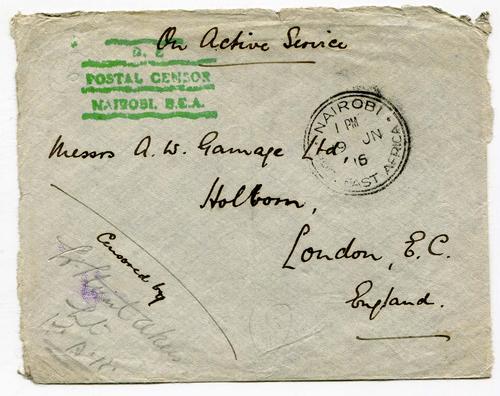 On Active Service
POSTAL CENSOR
NAIROBI. B.E.A.
NAIROBI
1 PM
9 JN
16
EAST AFRICA
Messrs A. W. Gamage Ltd
Holborn,
London, E.C.
England.
Censored by
Lt